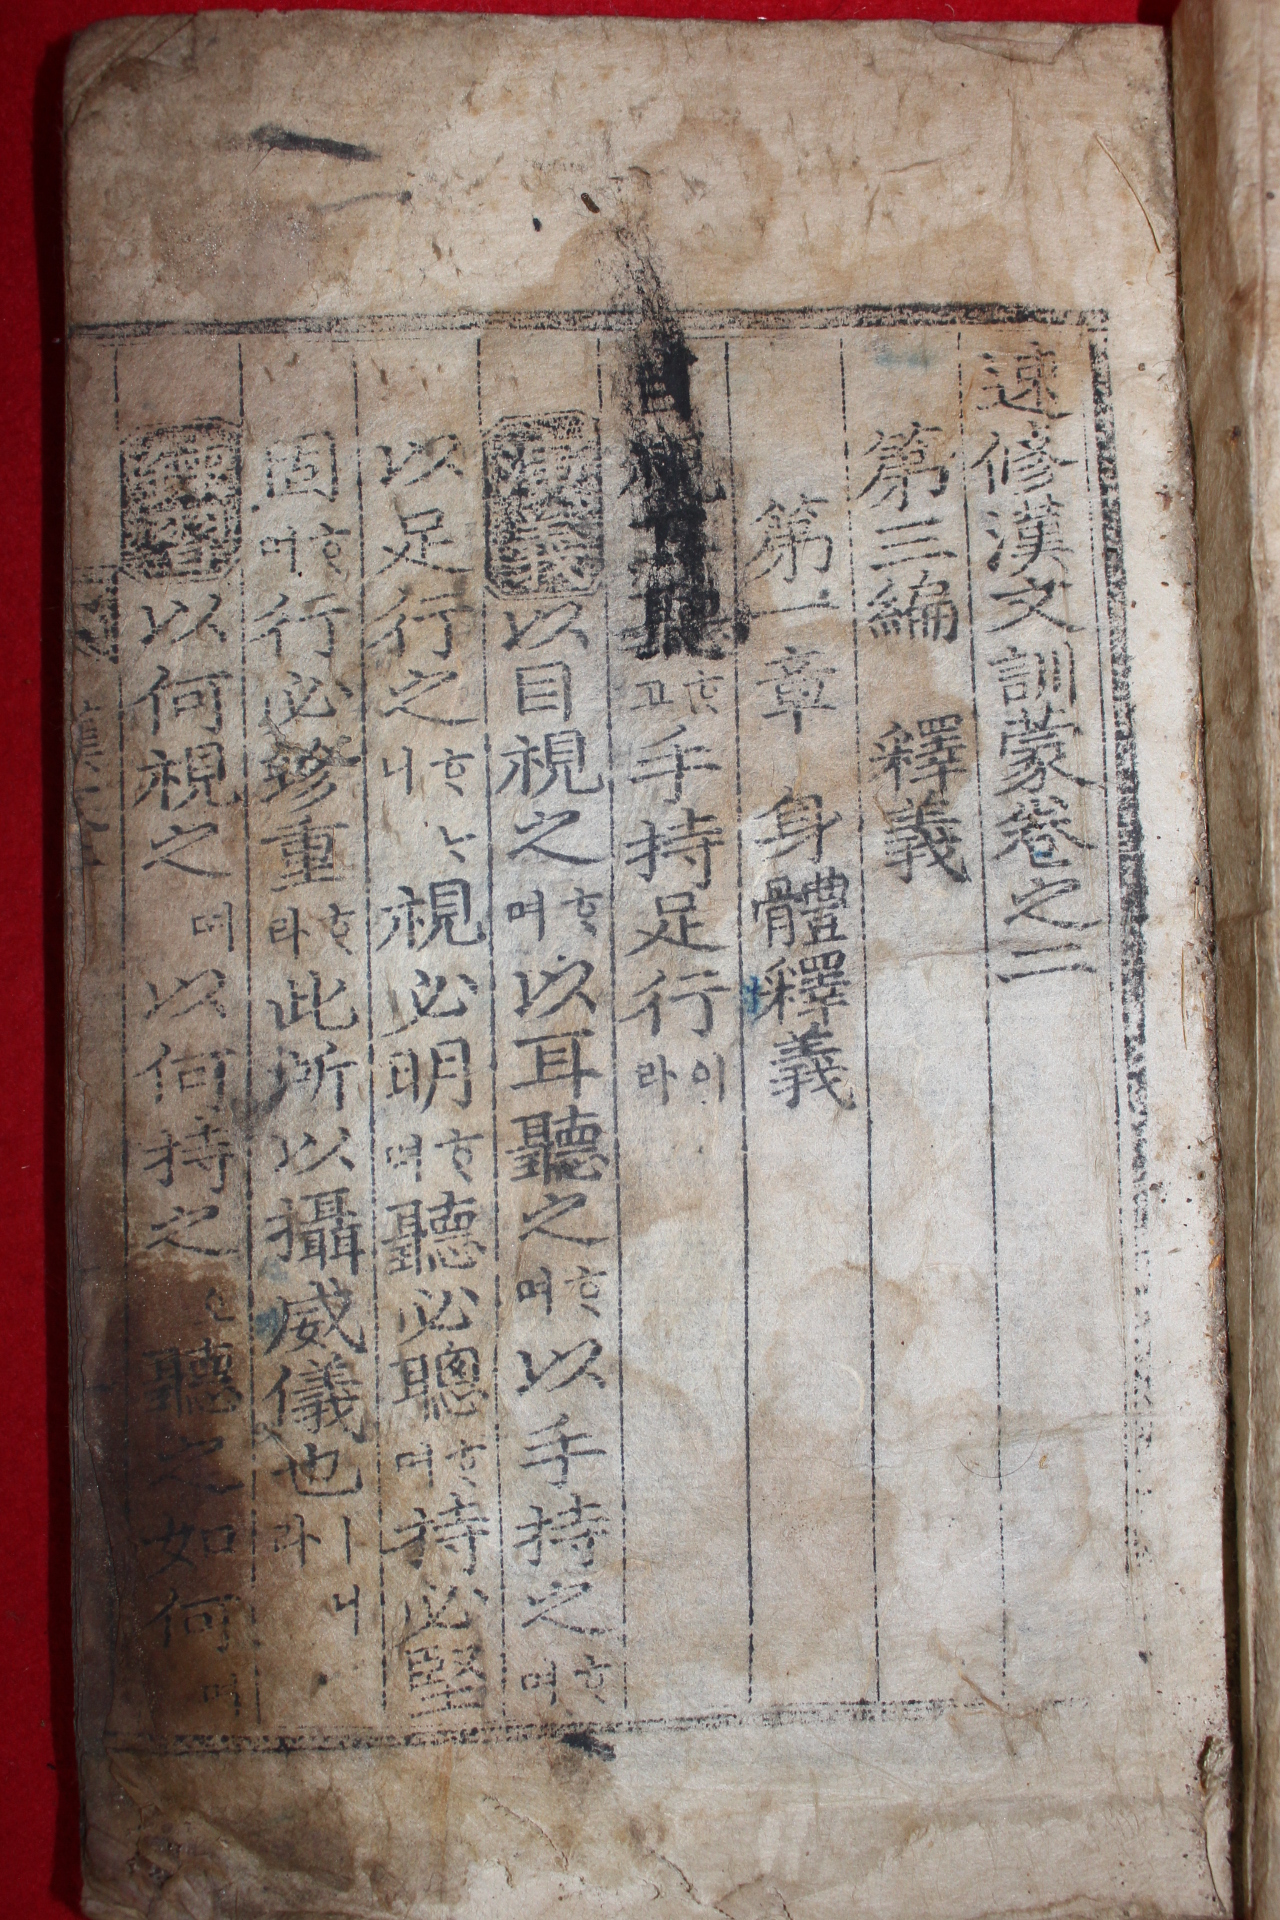 速修漢文訓蒙卷之二
第三編 釋義
第一章 身體釋義
目視耳聽ᄒᆞ고手持足行이라
演義 以目視之ᄒᆞ며以耳聽之ᄒᆞ며以手持之ᄒᆞ며
以足行之ᄒᆞᄂᆞ니視必明ᄒᆞ며聽必聰ᄒᆞ며持必堅
固ᄒᆞ며行必珍重ᄒᆞ라此所以攝威儀也ㅣ니라
練習 以何視之며以何持之오聽之如何며